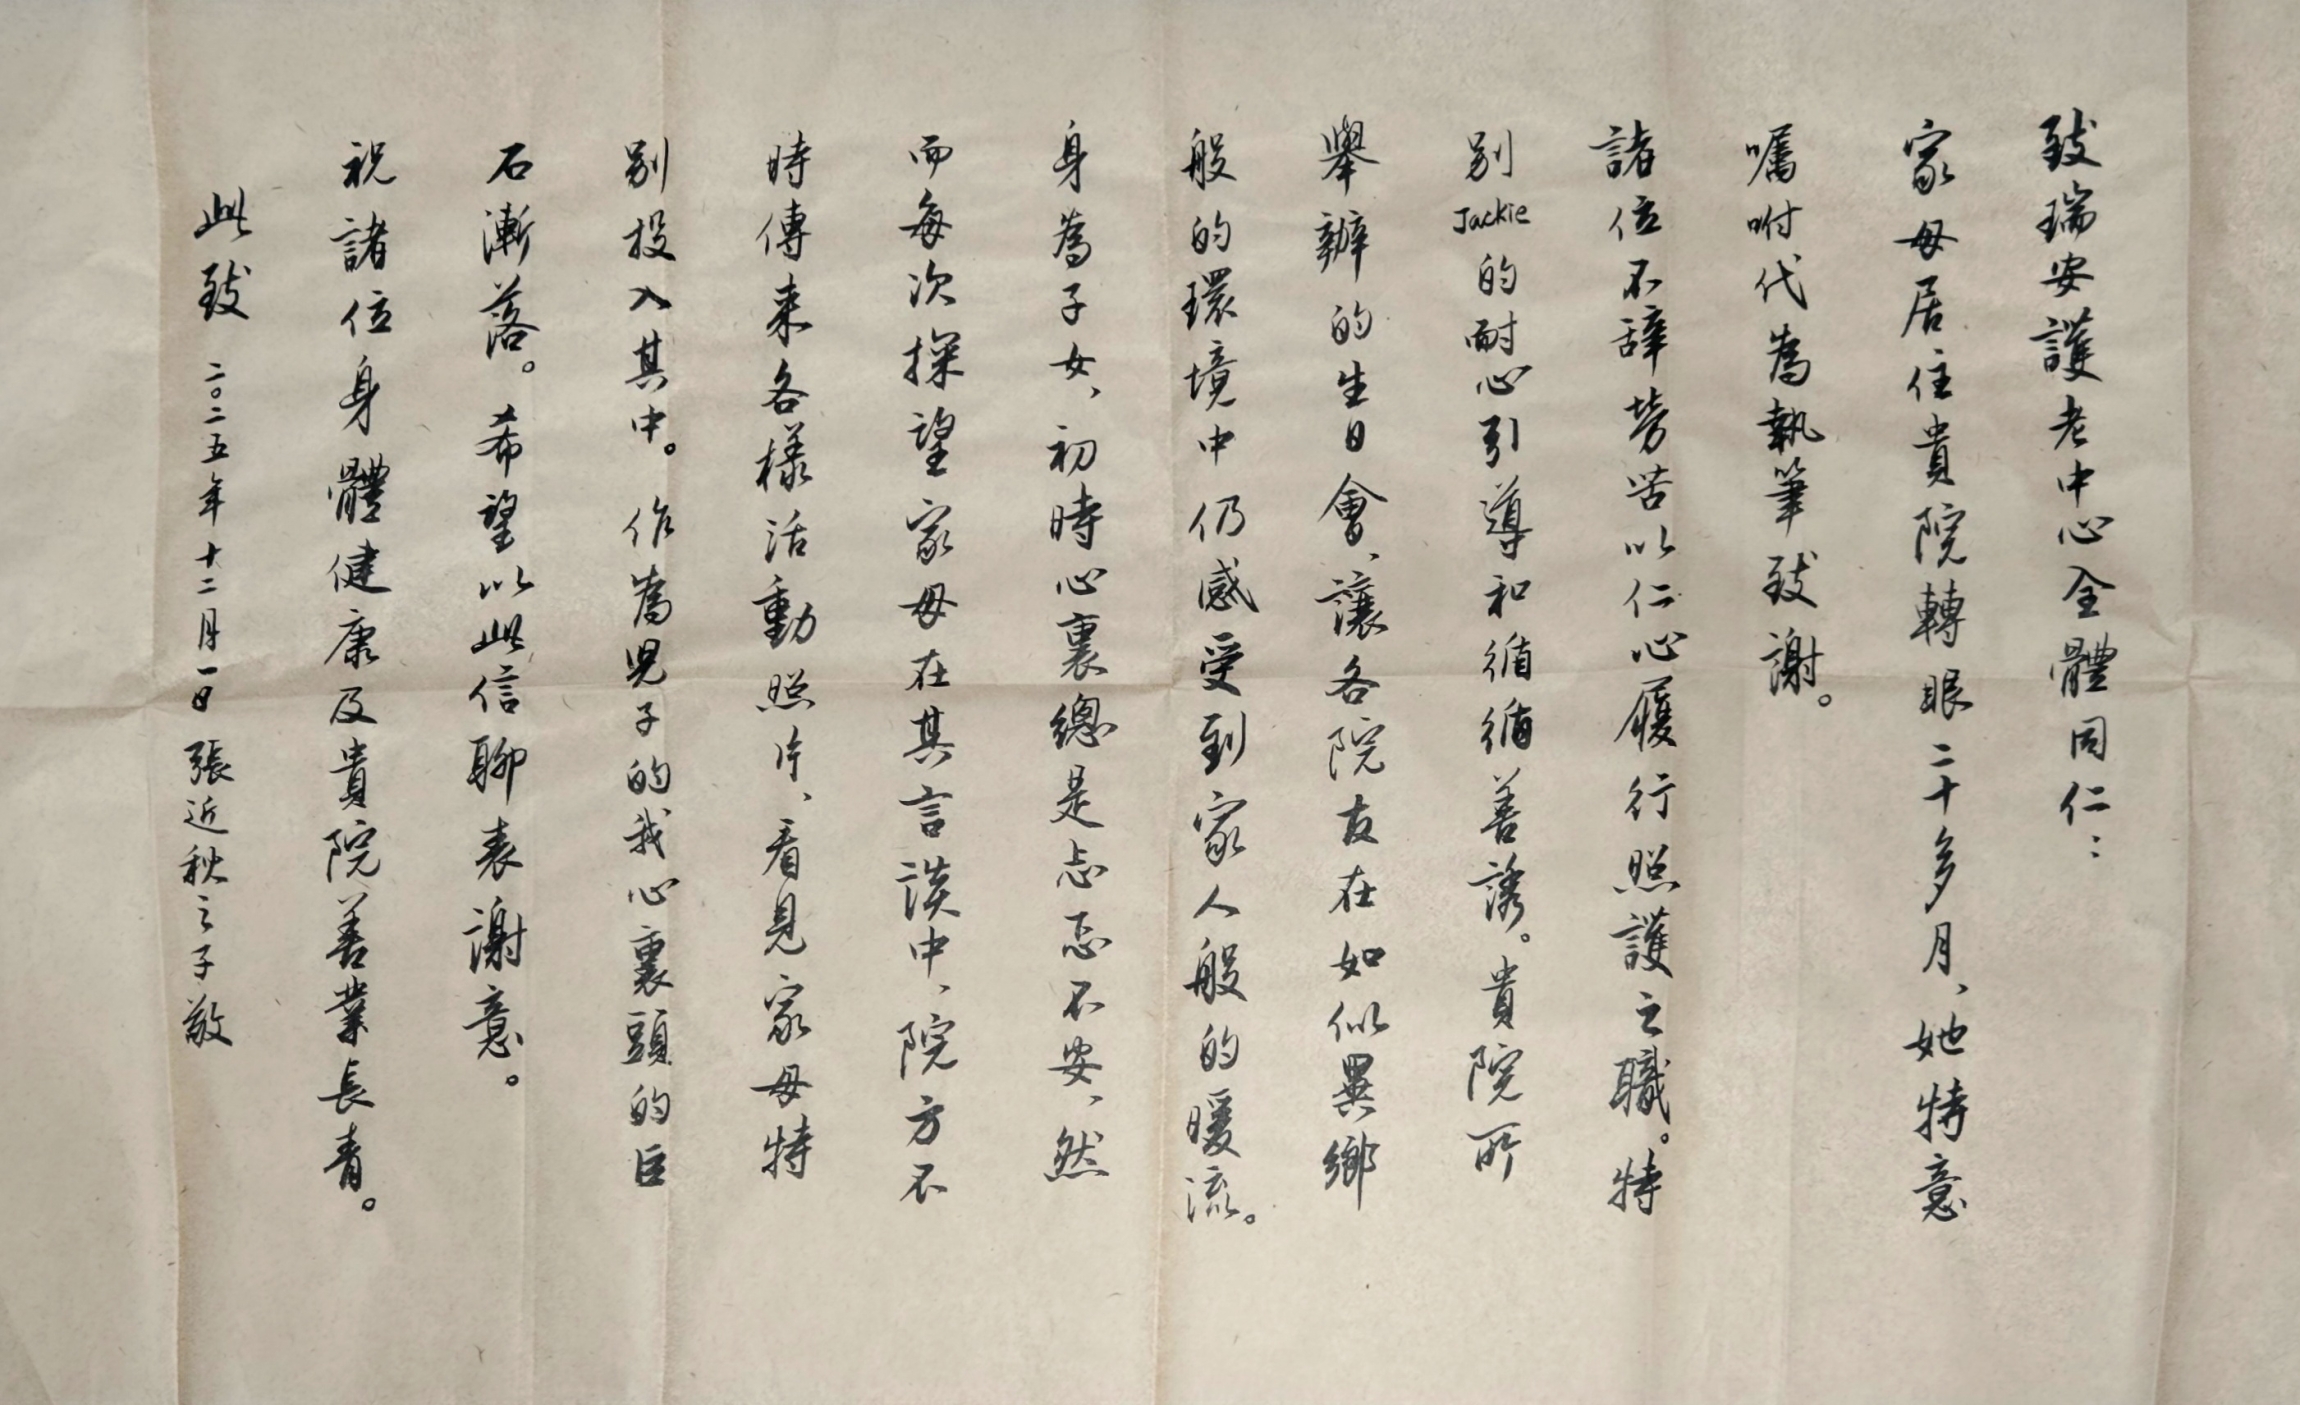 致瑞安護老中心全體同仁：
家母居住貴院轉眼二十多月、她特意
囑咐代為執筆致謝。
諸位不辭勞苦以仁心履行照護之職。特
別Jackie的耐心引導和循循善誘。貴院所
舉辦的生日會、讓各院友在如似異鄉
般的環境中仍感受到家人般的暖流。
身為子女、初時心裏總是忐忑不安、然
而每次探望家母在其言談中、院方不
時傳来各樣活動照片、看見家母特
别投入其中。作為児子的我心裏頭的巨
石漸落。希望以此信聊表謝意。
祝諸位身體健康及貴院善業長青。
此致 二〇二五年十二月一日 張近秋之子敬